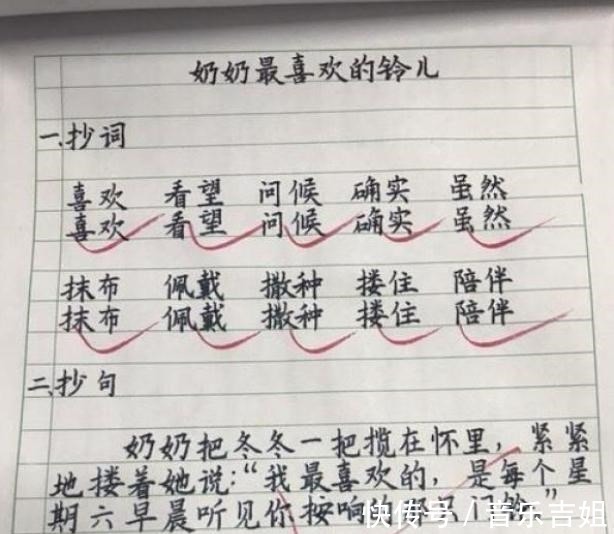 奶奶最喜欢的铃儿
一、抄词
喜欢 看望 问候 确实 虽然
喜欢 看望 问候 确实 虽然
抹布 佩戴 撒种 搂住 陪伴
抹布 佩戴 撒种 搂住 陪伴
二、抄句
奶奶把冬冬一把揽在怀里，紧紧
地搂着她说：“我最喜欢的，是每个星
期六早晨听见你按响的
快传号 / 音乐吉姐